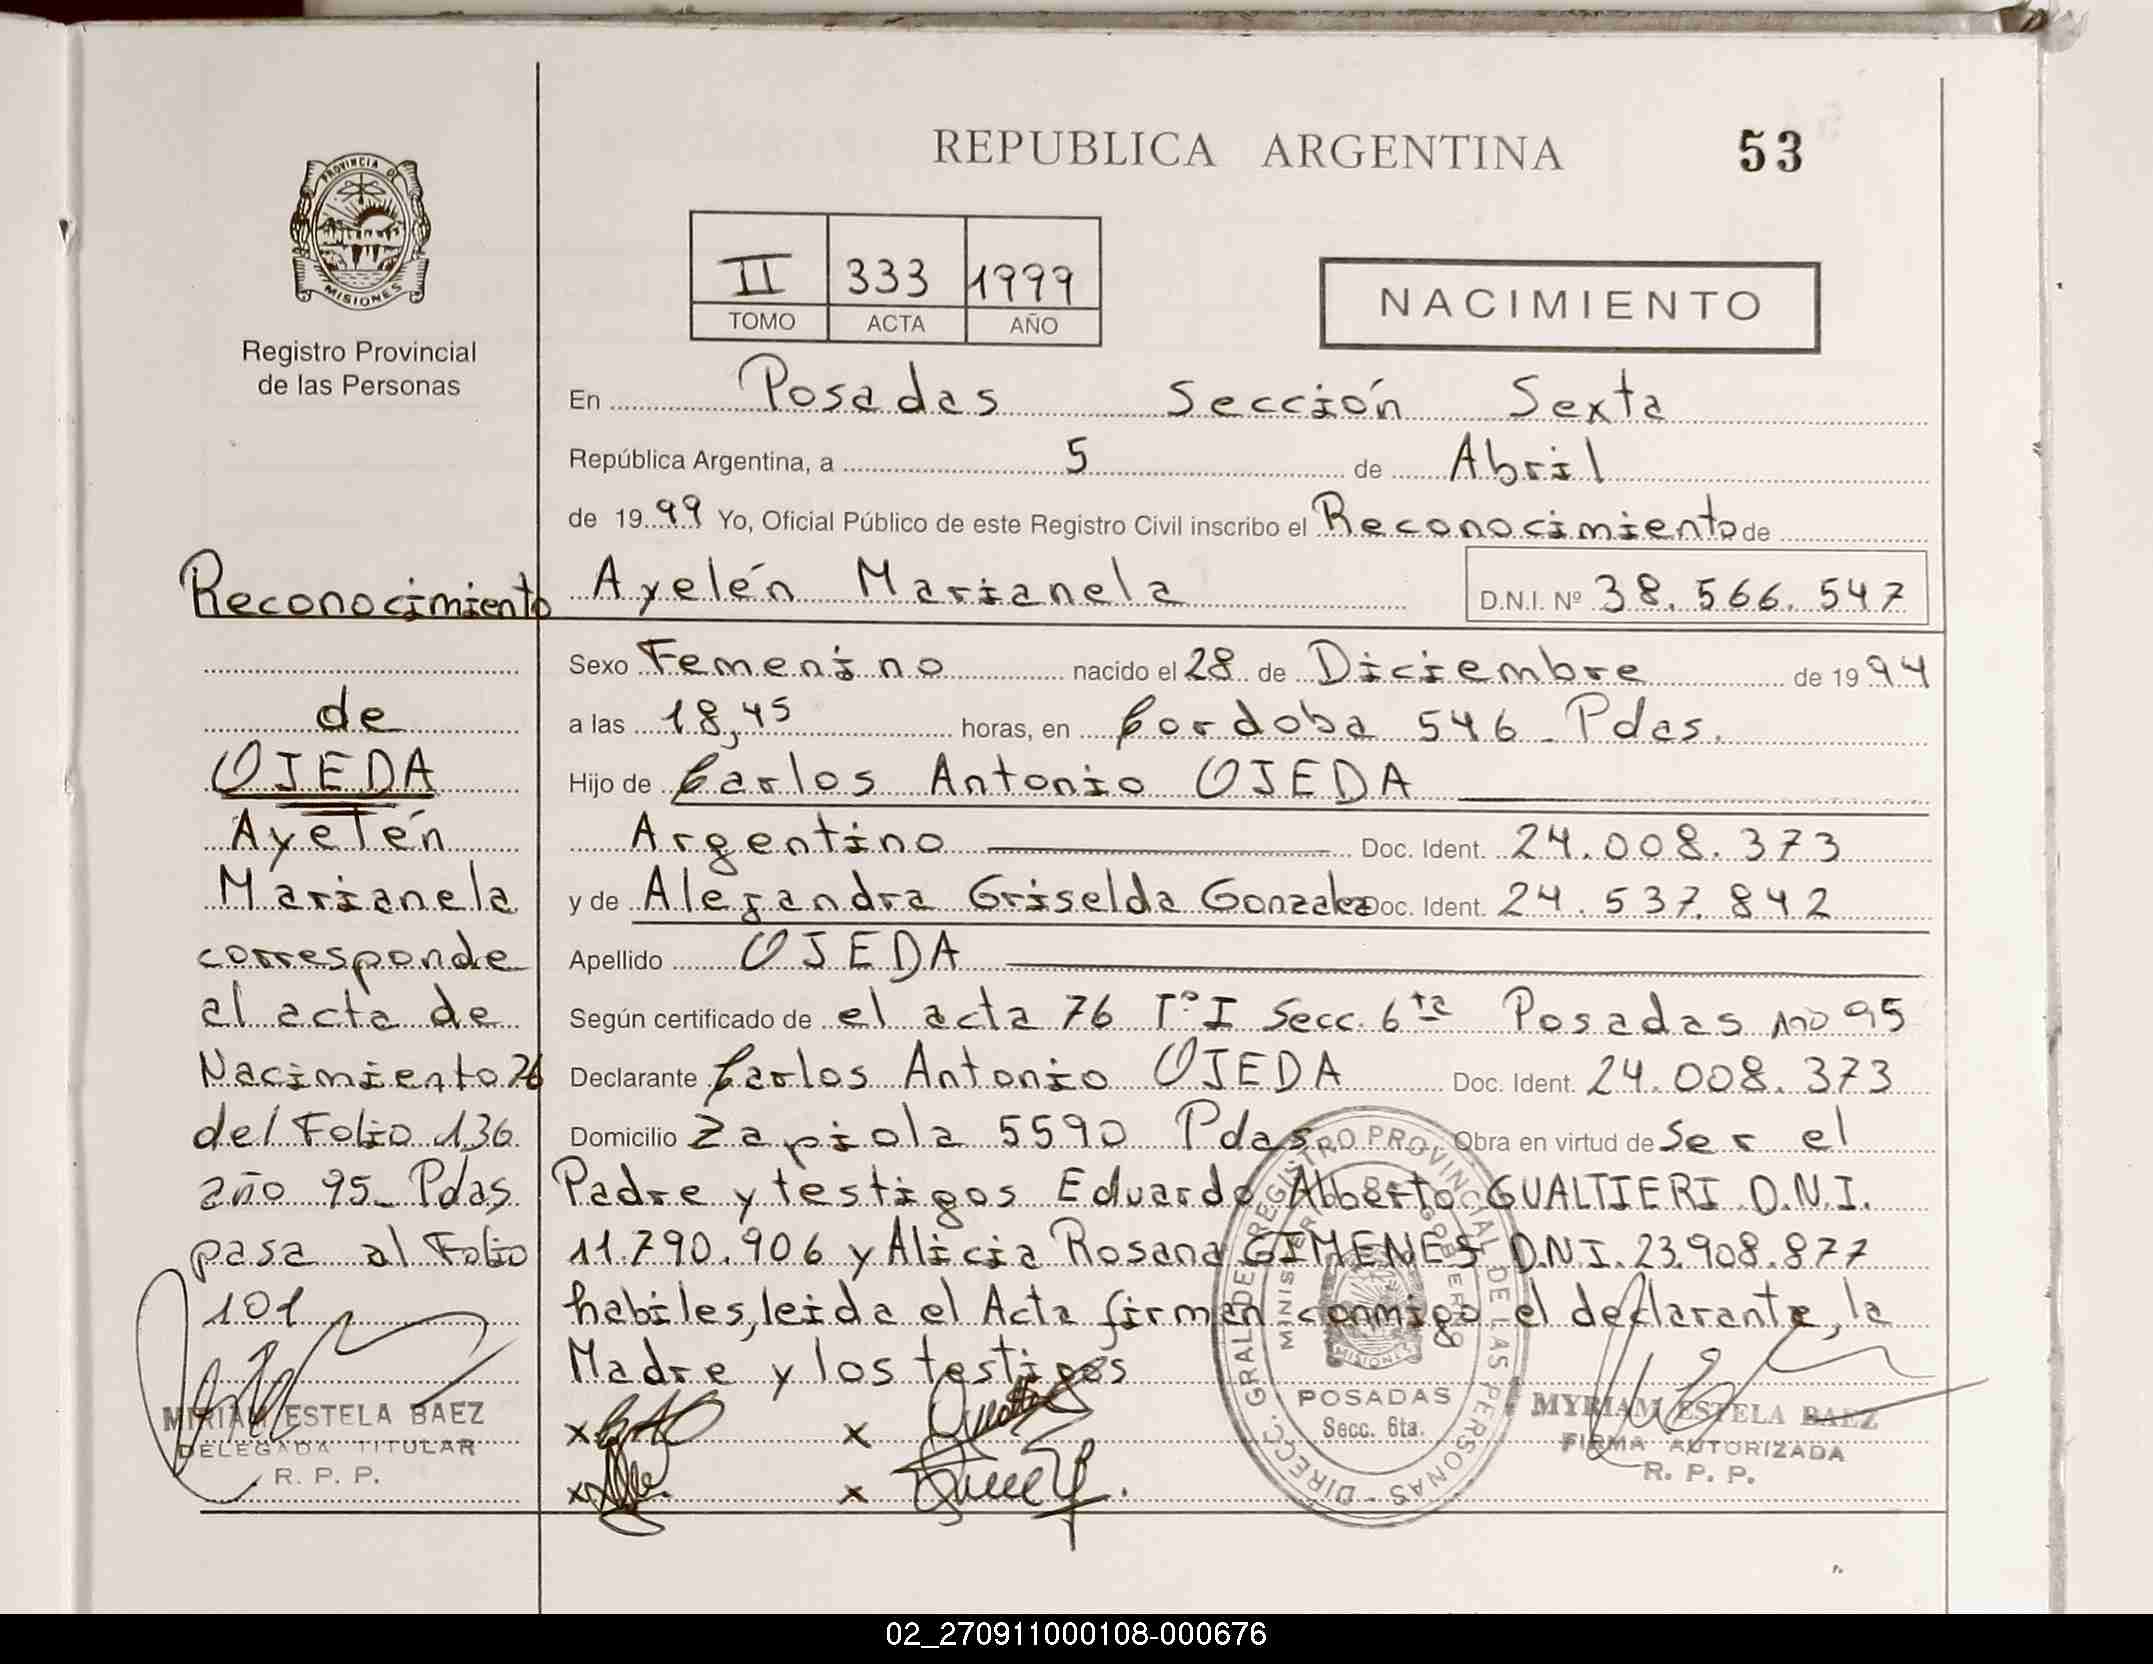 REPUBLICA ARGENTINA 53
PROVINCIA DE
MISIONES
Registro Provincial
de las Personas
II 333 1999
TOMO ACTA AÑO
NACIMIENTO
En Posadas Sección Sexta
República Argentina, a 5 de Abril
de 1999 Yo, Oficial Público de este Registro Civil inscribo el Reconocimiento de
Ayelén Marianela D.N.I. Nº 38.566.547
Sexo Femenino nacido el 28 de Diciembre de 1994
a las 18,45 horas, en Cordoba 546 - Pdas.
Hijo de Carlos Antonio OJEDA
Argentino Doc. Ident. 24.008.373
y de Alejandra Griselda Gonzalez Doc. Ident. 24.537.842
Apellido OJEDA
Según certificado de el acta 76 Tº I Secc. 6ta Posadas año 95
Declarante Carlos Antonio OJEDA Doc. Ident. 24.008.373
Domicilio Zapiola 5590 Pdas Obra en virtud de Ser el
Padre y testigos Eduardo Alberto GUALTIERI D.N.I.
11.790.906 y Alicia Rosana GIMENES D.N.I. 23.908.877
habiles, leida el Acta firman conmigo el declarante, la
Madre y los testigos
x x
x x
Reconocimiento
de
OJEDA
Ayelén
Marianela
corresponde
al acta de
Nacimiento 76
del Folio 136
año 95_ Pdas
pasa al Folio
101
MIRIAM ESTELA BAEZ
DELEGADA TITULAR
R. P. P.
DIRECC. GRAL DEL REGISTRO PROVINCIAL DE LAS PERSONAS -
MINISTERIO DE GOBIERNO
MISIONES
POSADAS
Secc. 6ta.
MYRIAM ESTELA BAEZ
FIRMA AUTORIZADA
R. P. P.
02_270911000108-000676